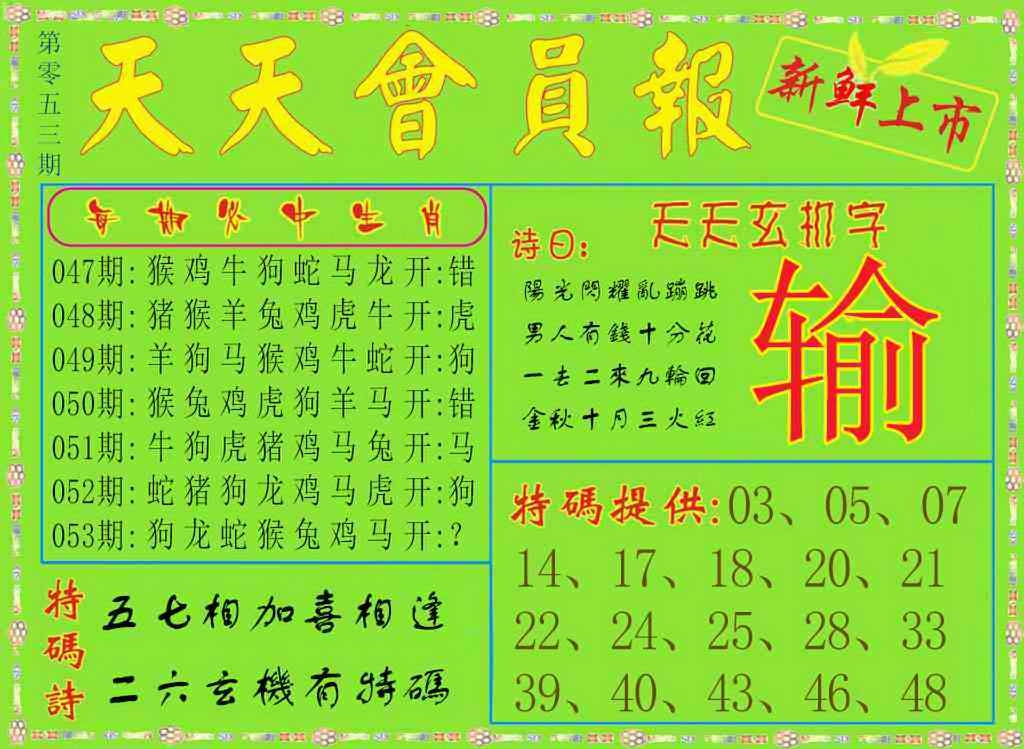 第零五三期
天天會員報
新鮮上市
每期必中生肖
047期: 猴鸡牛狗蛇马龙开:错
048期: 猪猴羊兔鸡虎牛开:虎
049期: 羊狗马猴鸡牛蛇开:狗
050期: 猴兔鸡虎狗羊马开:错
051期: 牛狗虎猪鸡马兔开:马
052期: 蛇猪狗龙鸡马虎开:狗
053期: 狗龙蛇猴兔鸡马开:?
天天玄机字
诗曰:
陽光閃耀亂蹦跳
男人有錢十分花
一去二來九輪回
金秋十月三火紅
输
特碼提供:03、05、07
14、17、18、20、21
22、24、25、28、33
39、40、43、46、48
特碼詩
五七相加喜相逢
二六玄機有特碼